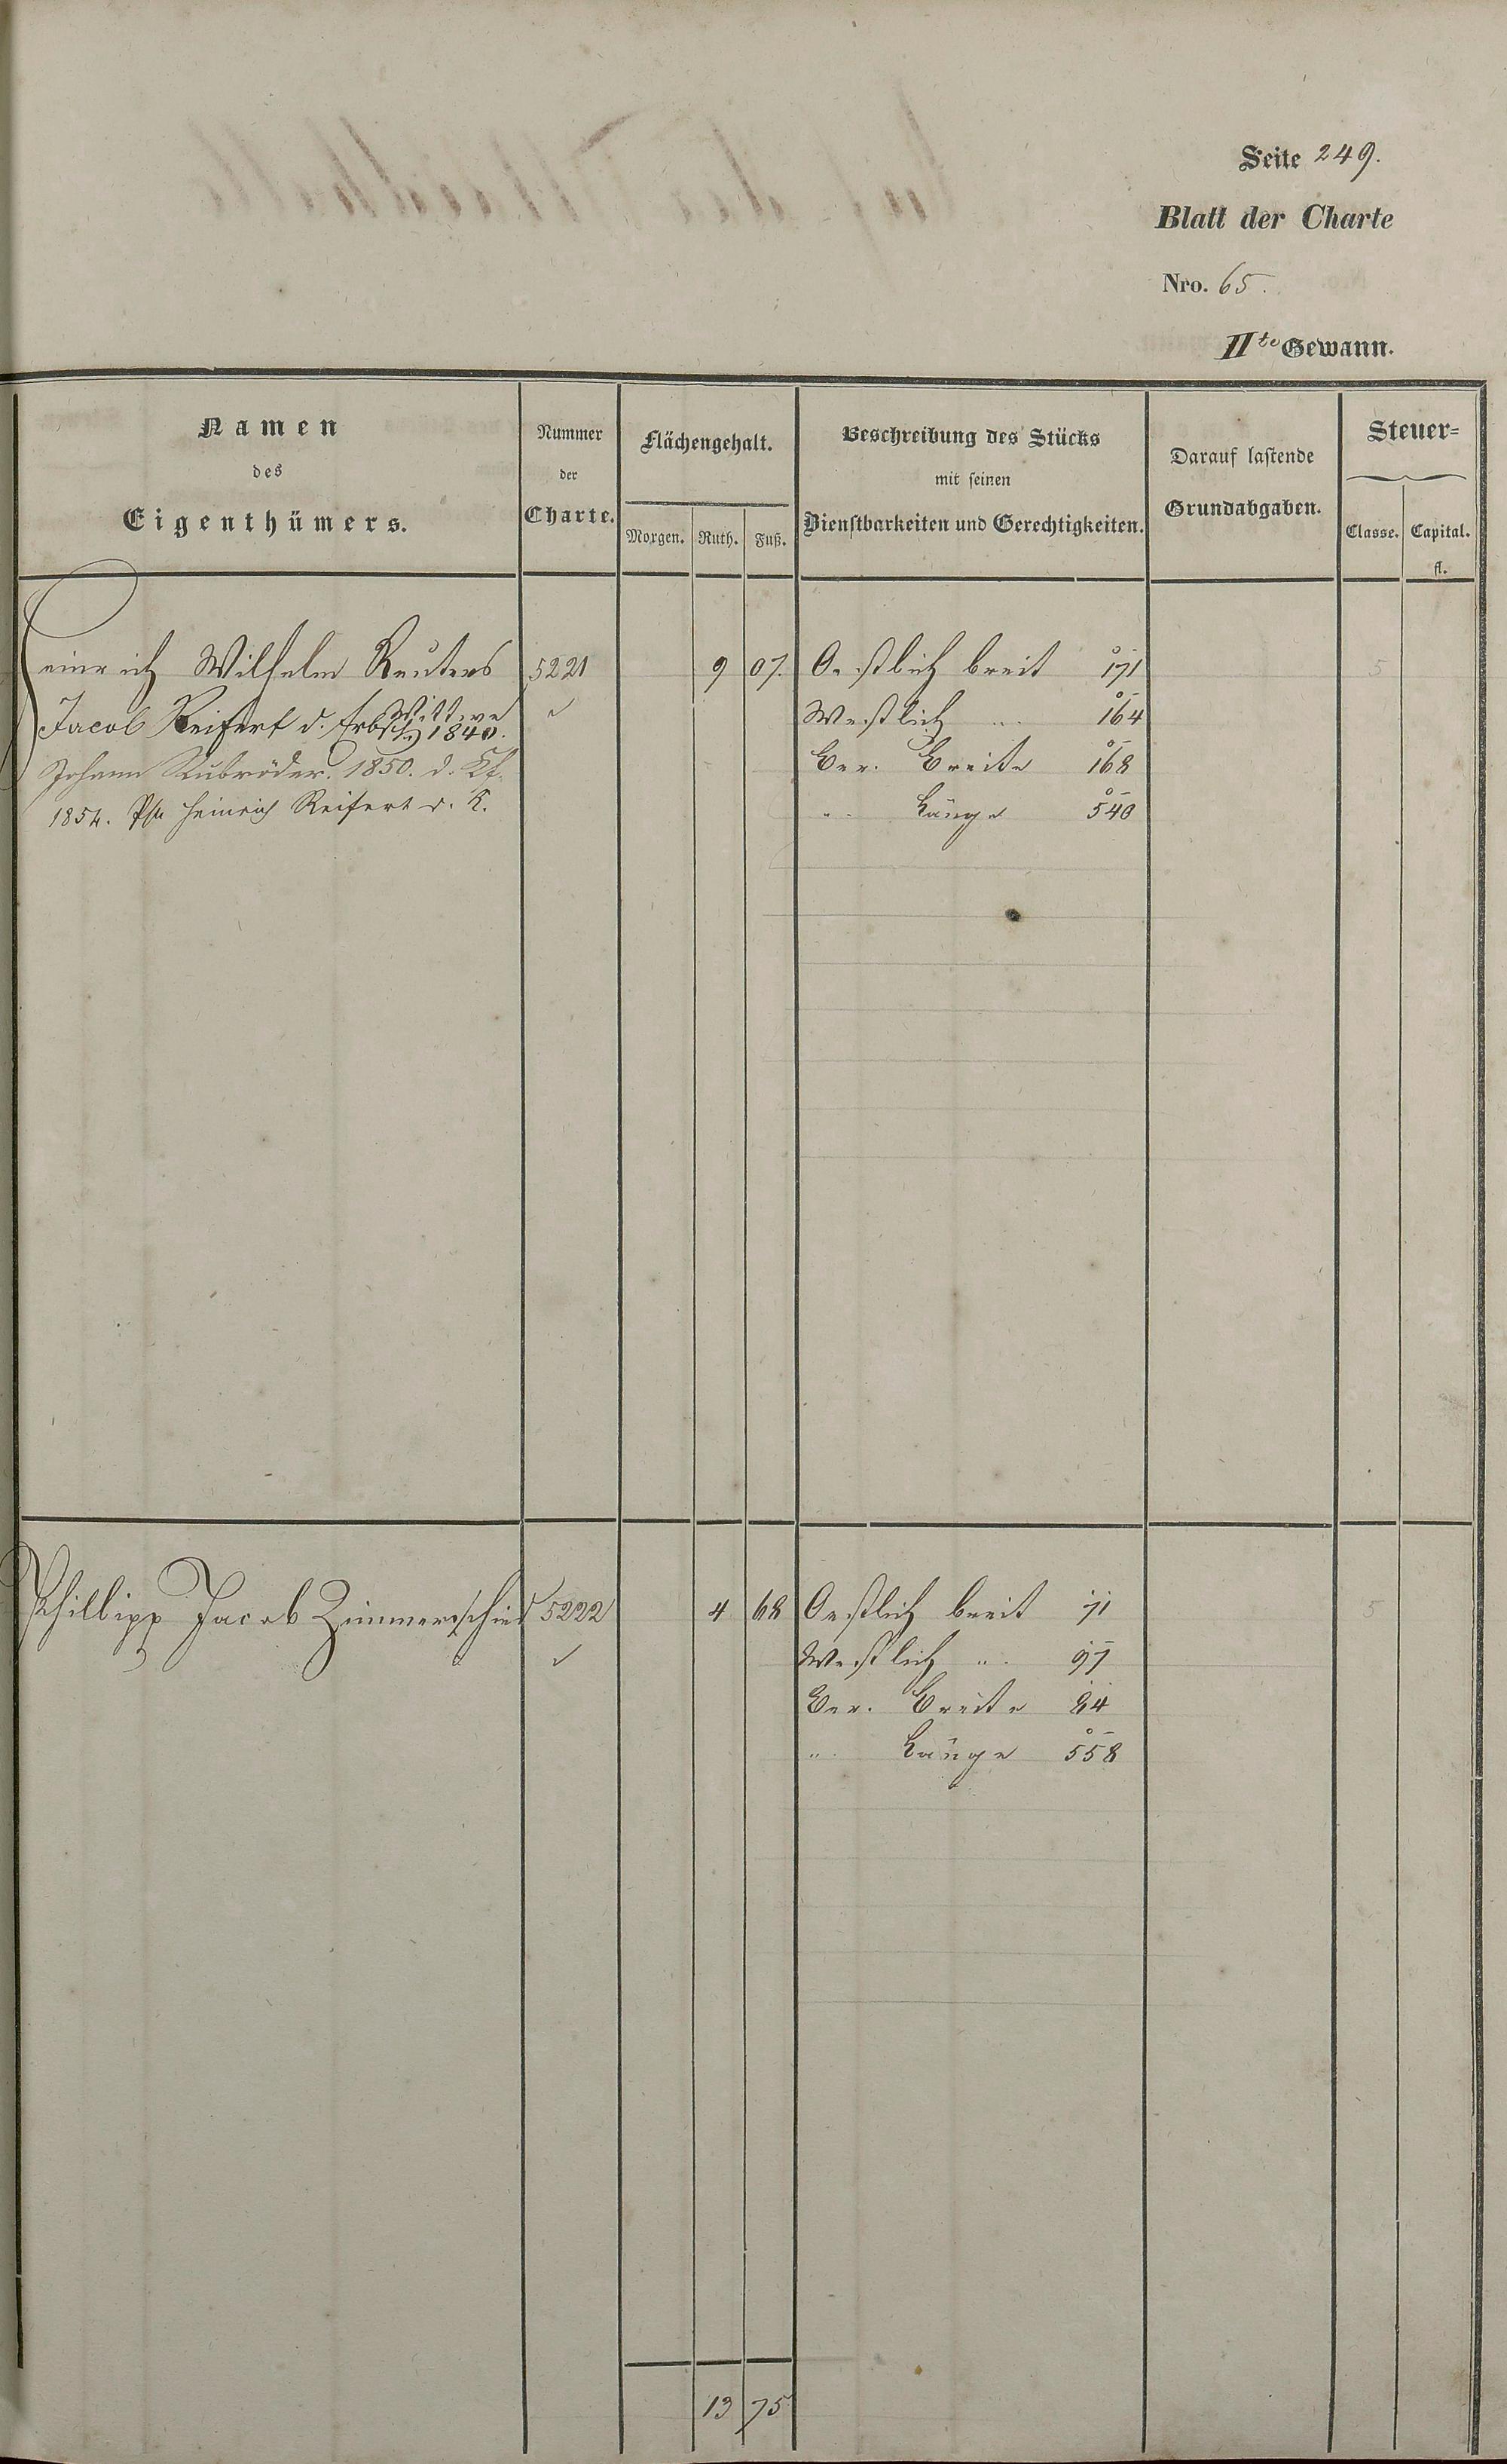 Seite 249.
Blatt der Charte
Nro. 65.
IIte Gewann.
Namen
des
Eigenthümers.
Nummer
der
Charte.
Flächengehalt.
Morgen. Ruth. Fuß.
Beschreibung des Stücks
mit seinen
Dienstbarkeiten und Gerechtigkeiten.
Darauf lastende
Grundabgaben.
Steuer=
Classe. Capital.
fl.
Heinrich Wilhelm Reuters 5221 9 07. Oestlich breit 171 5
Wittwe
Jacob Reifert d. Erbsch. 1840. Westlich " 164
Johann Rubröder. 1850. d. Kf. Ver. Breite 168
1854. Heinrich Reifert d. K. " Länge 540
Phillipp Jacob Zimmerschied 5222 4 68 Oestlich breit 71 5
Westlich " 97
Ver. Breite 84
" Länge 558
13 75